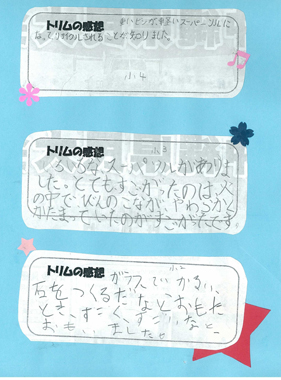 トリムの感想
軽いビンが、軽いスーパーソルに
なってリサイクルされることが分かりました。
小4
トリムの感想
小3
いろいろなスーパーソルがありま
した。とてもすごかったのは、火
の中でビンのこながやわらかく
かたまっていたのがすごかったです。
トリムの感想
小2
ガラスでかるい、
石をつくるだなんておもた
とき、すごく、すごいなと、
おもいました。